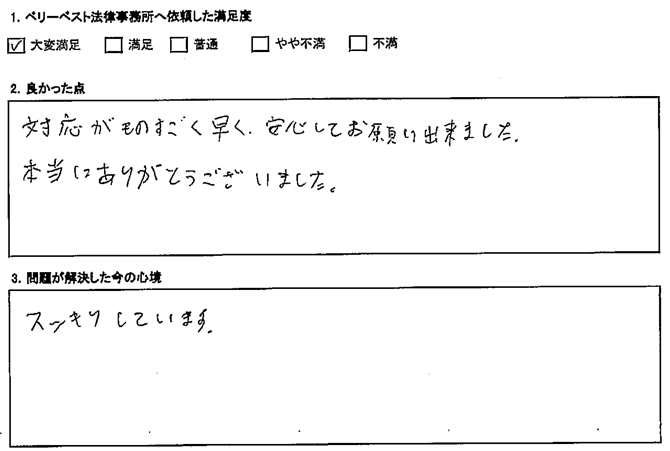 1. ベリーベスト法律事務所へ依頼した満足度
☑ 大変満足 □ 満足 □ 普通 □ やや不満 □ 不満
2. 良かった点
対応がものすごく早く、安心してお願い出来ました。
本当にありがとうございました。
3. 問題が解決した今の心境
スッキリしています。